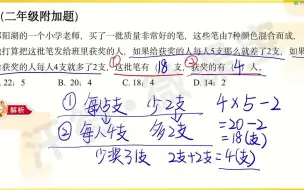 (二年级附加题)
邵阳的一个小学老师，买了一批质量非常好的笔，这些笔由7种颜色混合而成，
打算把这批笔发给班里获奖的人，如果给获奖的人每人5支那么就差了2支，如
给获奖的人每人4支就多了2支，这批笔有( 18 )支，获奖的有( 4 )人。
22；5
B. 18；4
C. 20；4
D. 14；2
解析
① 每人5支 少2支 4×5-2
② 每人4支 多2支 =20-2
=18(支)
少奖了1支 2支+2支=4(支)